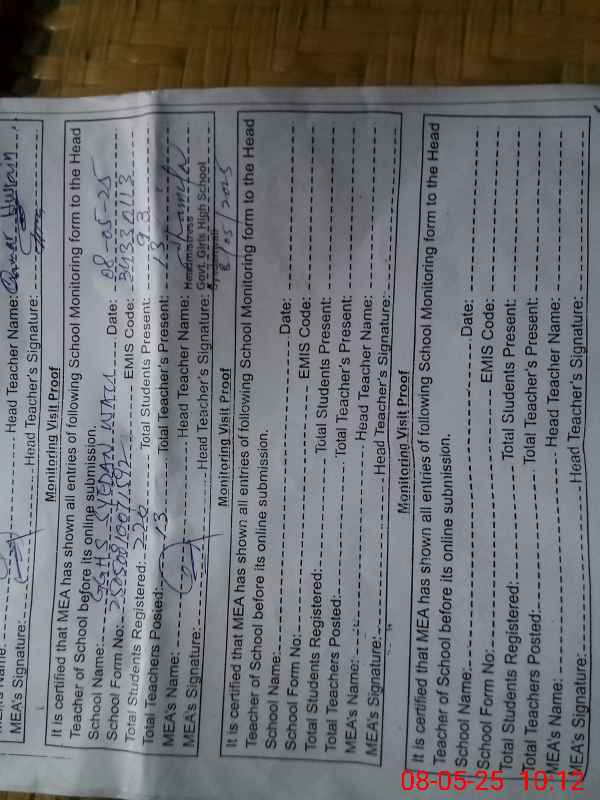 Head Teacher Name: Qamar Hussain
MEA's Signature: Head Teacher's Signature:
Monitoring Visit Proof
It is certified that MEA has shown all entries of following School Monitoring form to the Head
Teacher of School before its online submission.
School Name: GGHS SYEDAN WALI Date: 08-05-25
School Form No: EMIS Code: 34330113
Total Students Registered: 220 Total Students Present: 93
Total Teachers Posted: 13 Total Teacher's Present: 13
MEA's Name: Head Teacher Name:
MEA's Signature: Head Teacher's Signature:
Headmistress
Govt. Girls High School
8/05/2025
Monitoring Visit Proof
It is certified that MEA has shown all entries of following School Monitoring form to the Head
Teacher of School before its online submission.
School Name: Date:
School Form No: EMIS Code:
Total Students Registered: Total Students Present:
Total Teachers Posted: Total Teacher's Present:
MEA's Name: Head Teacher Name:
MEA's Signature: Head Teacher's Signature:
Monitoring Visit Proof
It is certified that MEA has shown all entries of following School Monitoring form to the Head
Teacher of School before its online submission.
School Name: Date:
School Form No: EMIS Code:
Total Students Registered: Total Students Present:
Total Teachers Posted: Total Teacher's Present:
MEA's Name: Head Teacher Name:
MEA's Signature: Head Teacher's Signature:
08-05-25 10:12